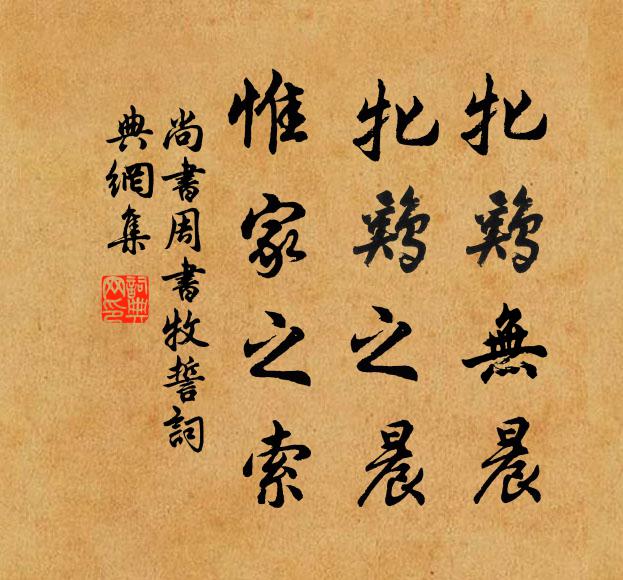 牝鷄無晨
牝鷄之晨
惟家之索
尚書周書牧誓詞
典網集
詞典
網印